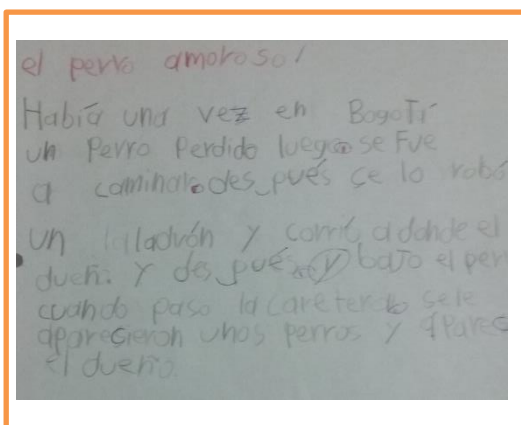 el perro amoroso!
Había una vez en Bogotí
un Perro Perdido luego se Fue
a caminar des pués se lo robó
un ladrón y corrió a donde el
dueñ. Y des pués y bajo el per
cuando paso la caretera se le
aparecieron unos perros y apares
el dueño.